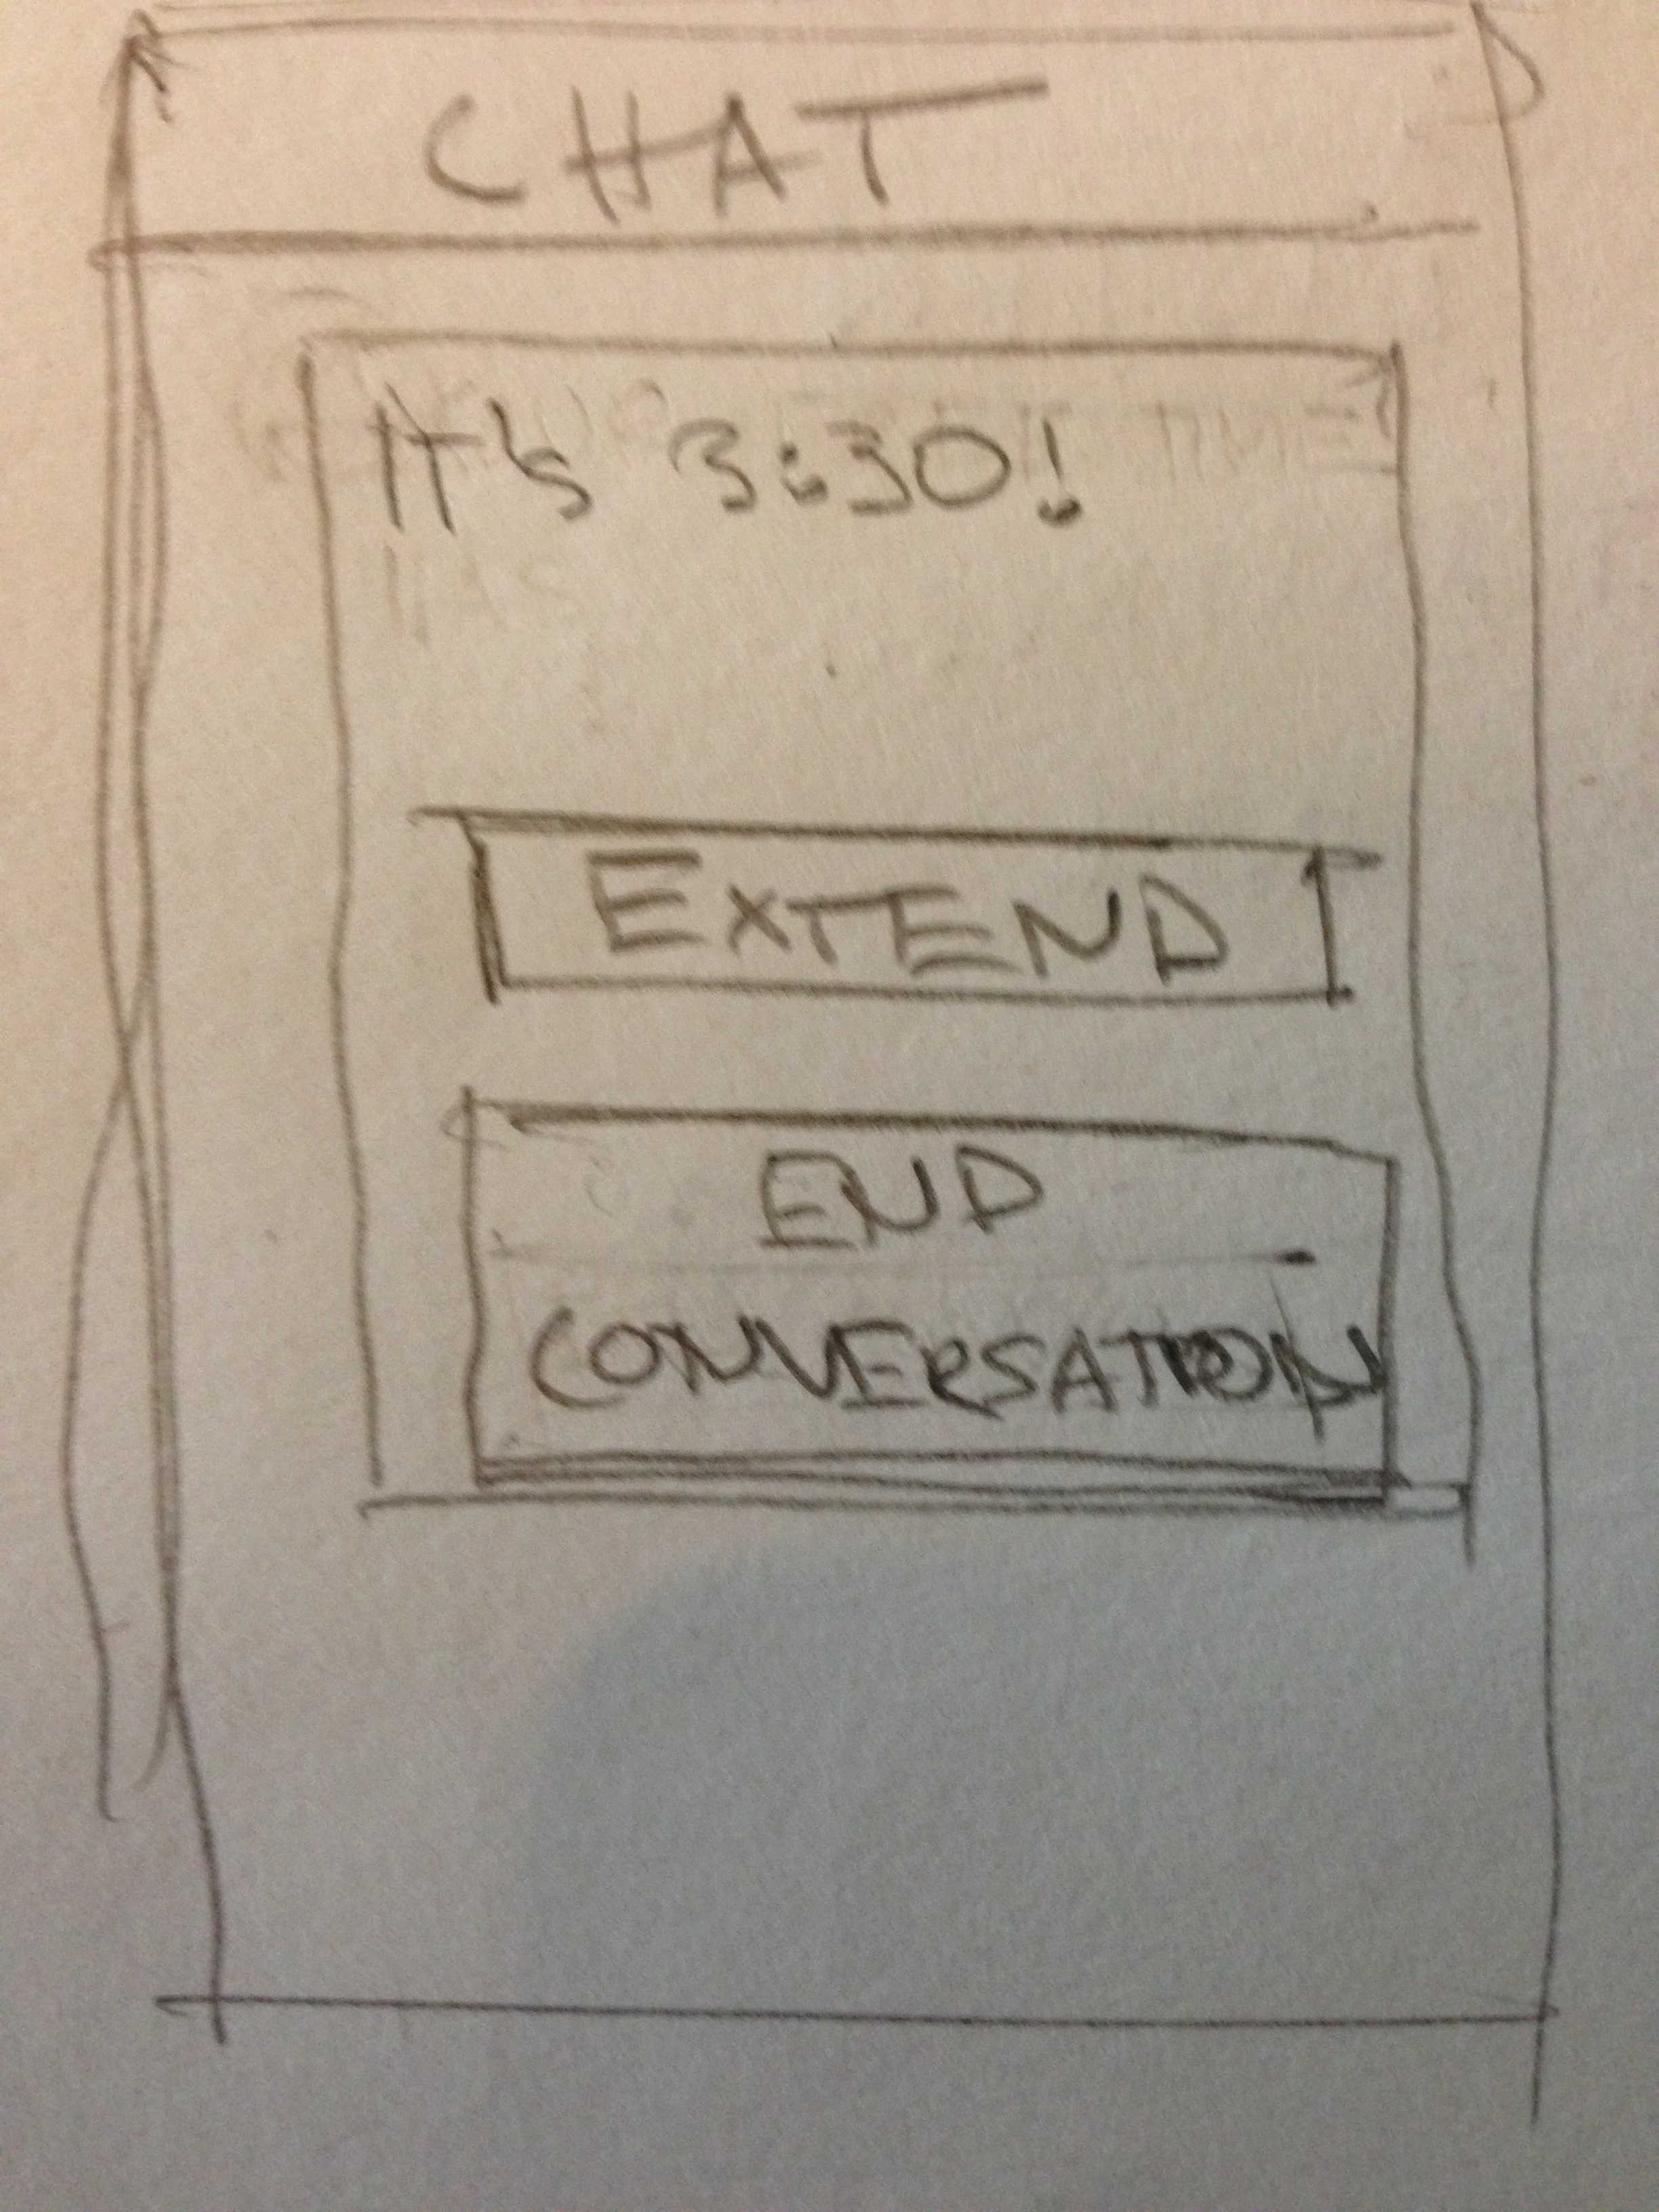 CHAT
It's 3:30!
TIME!
EXTEND
END
CONVERSATION